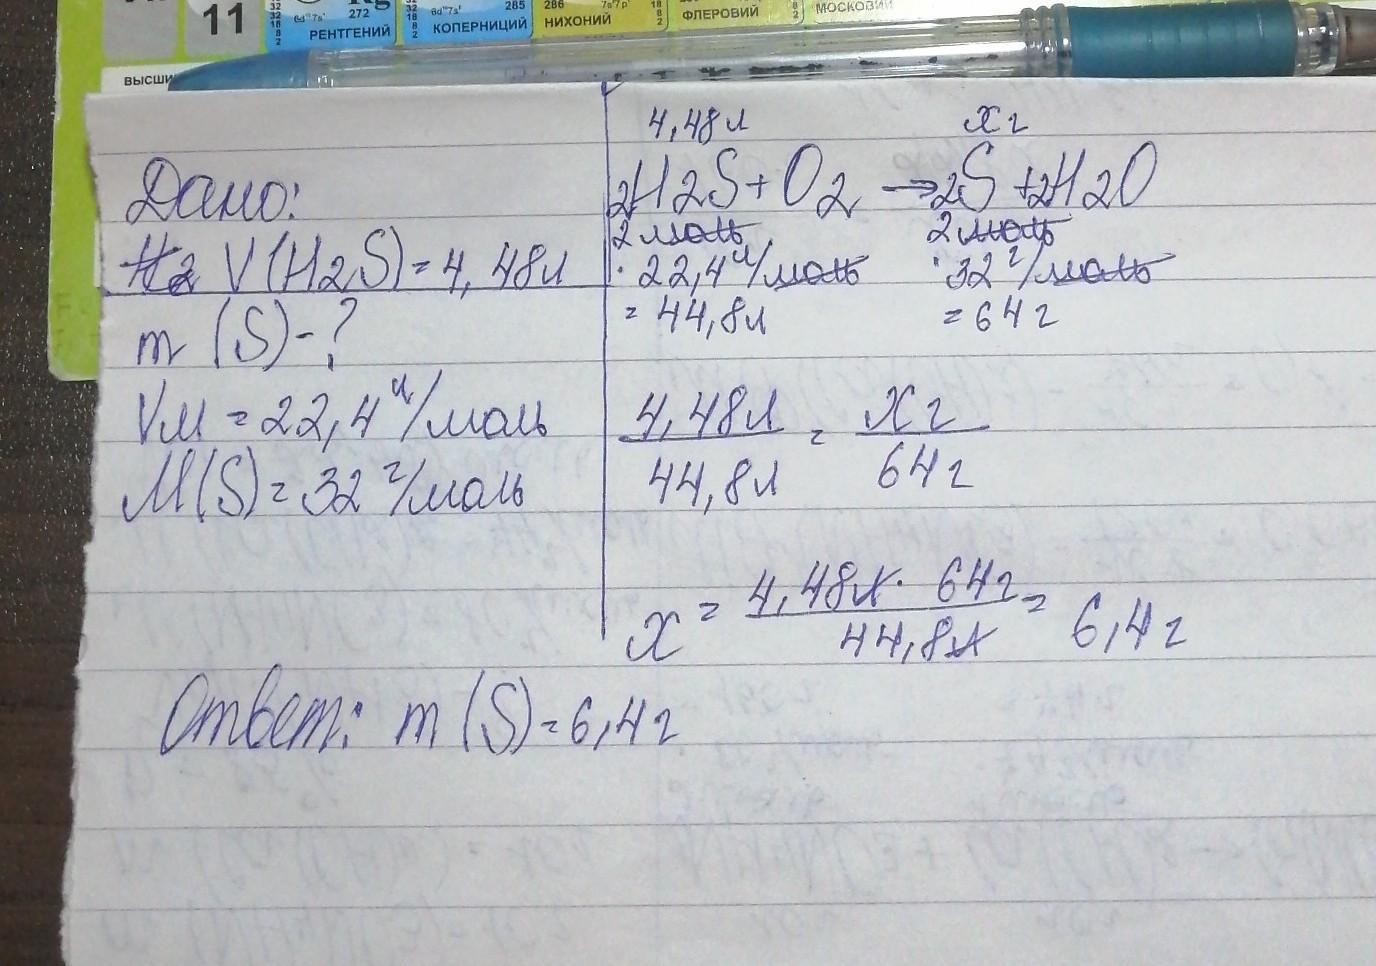 11
Rg
6d¹⁰7s¹ 272
РЕНТГЕНИЙ
6d¹⁰7s² 285
КОПЕРНИЦИЙ
286 7s²7p¹
НИХОНИЙ
ФЛЕРОВИЙ
МОСКОВИЙ
32
32
18
8
2
ВЫСШИ
Дано:
H2 V(H2S)=4,48л
m (S)-?
Vм=22,4 л/моль
M(S)=32 г/моль
4,48л xг
2H2S+O2→2S+2H2O
2 моль 2 моль
·22,4 л/моль ·32 г/моль
=44,8л =64г
4,48л = xг
44,8л 64г
x = 4,48л·64г = 6,4г
44,8л
Ответ: m (S)=6,4г